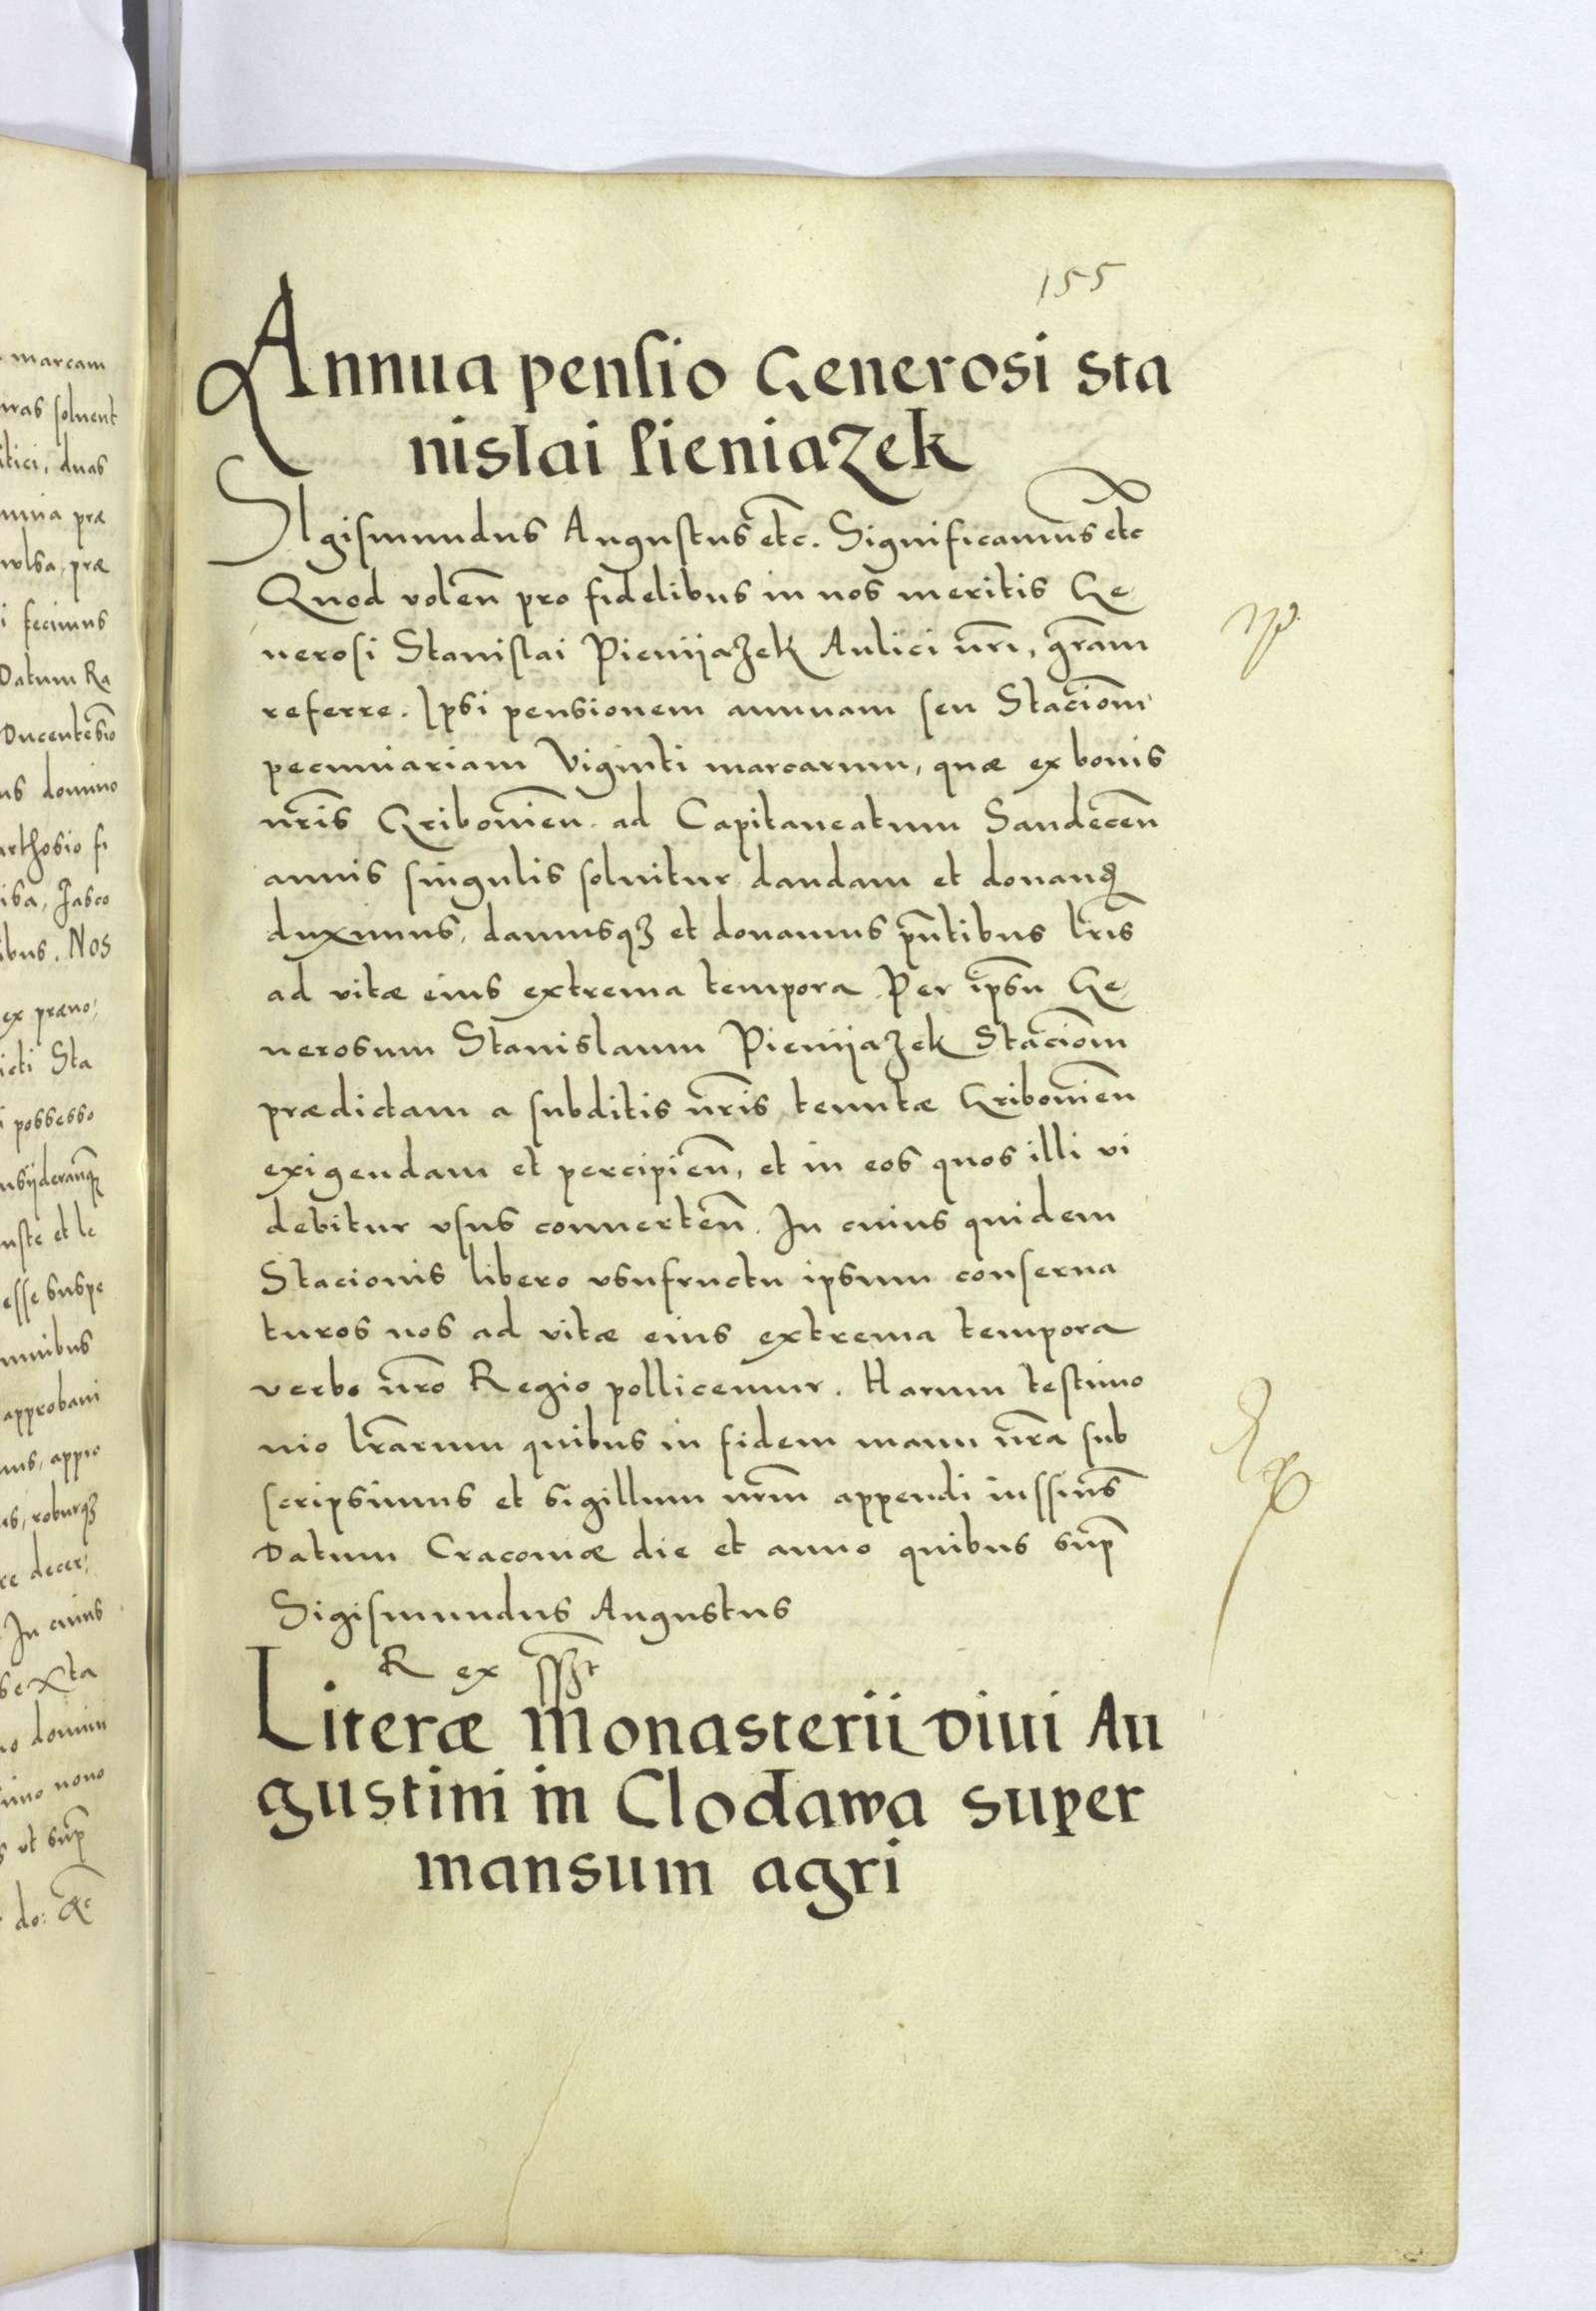 155
Annua pensio Generosi Sta
nislai Pieniazek
SIgismundus Augustus etc. Significamus etc
Quod volen̄ pro fidelibus in nos meritis Ge
nerosi Stanislai Pienijazek Aulici nr̄i, gr̄am
referre. Ipsi pensionem annuam seu Staciōm
pecuniariam Viginti marcarum, quæ ex bonis
nr̄is Gribouien̄. ad Capitaneatum Sandecen̄
annis singulis soluitur dandam et donanđ
duximus, damusqꝫ et donamus pn̄tibus lr̄is
ad vitæ eius extrema tempora. Per ip̄su Ge
nerosum Stanislaum Pienijazek Staciōm
prædictam a subditis nr̄is tenutæ Gribouien̄
exigendam et percipien̄, et in eos quos illi vi
debitur vsus conuerten̄. In cuius quidem
Stacionis libero vsufructu ipsum conserua
turos nos ad vitæ eius extrema tempora
verbo nr̄o Regio pollicemur. Harum testimo
nio lr̄arum quibus in fidem manu nr̄a sub
scripsimus et sigillum nr̄m appendi iussim̄s
Datum Cracouiæ die et anno quibus sup̄
Sigismundus Augustus
Rex sst
Literæ Monasterii Diui Au
gustini in Clodawa super
mansum agri
marcam
soluent
duas
præ
præ
fecimus
Datum Ra
Ducentesīo
domino
Jasco
Nos
ex præno:
Sta
possesso
et le
esse suspe
approbaui
appro
roburqꝫ
decer:
In cuius
sexta
domini
nono
vt sup̄
do: &c